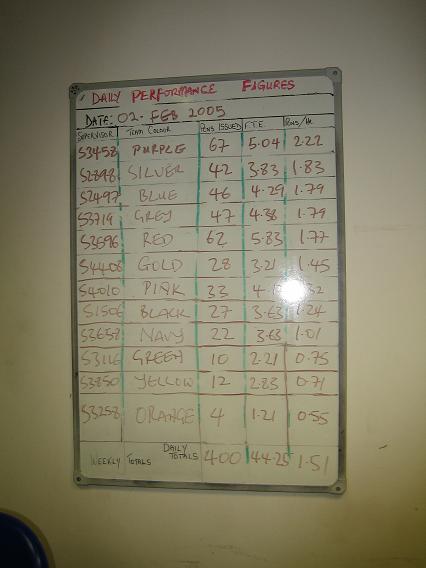 DAILY PERFORMANCE FIGURES
DATE: 02. FEB 2005
SUPERVISOR TEAM COLOUR PCNS ISSUED FTE PCNS/HR
S3458 PURPLE 67 5.04 2.22
S2898 SILVER 42 3.83 1.83
S2497 BLUE 46 4.29 1.79
S3719 GREY 47 4.38 1.79
S3596 RED 62 5.83 1.77
S4408 GOLD 28 3.21 1.45
S4010 PINK 33
S1506 BLACK 27 3.63 1.24
S3658 NAVY 22 3.63 1.01
S3116 GREEN 10 2.21 0.75
S3850 YELLOW 12 2.83 0.71
S3258 ORANGE 4 1.21 0.55
WEEKLY TOTALS DAILY TOTALS 400 44.25 1.51